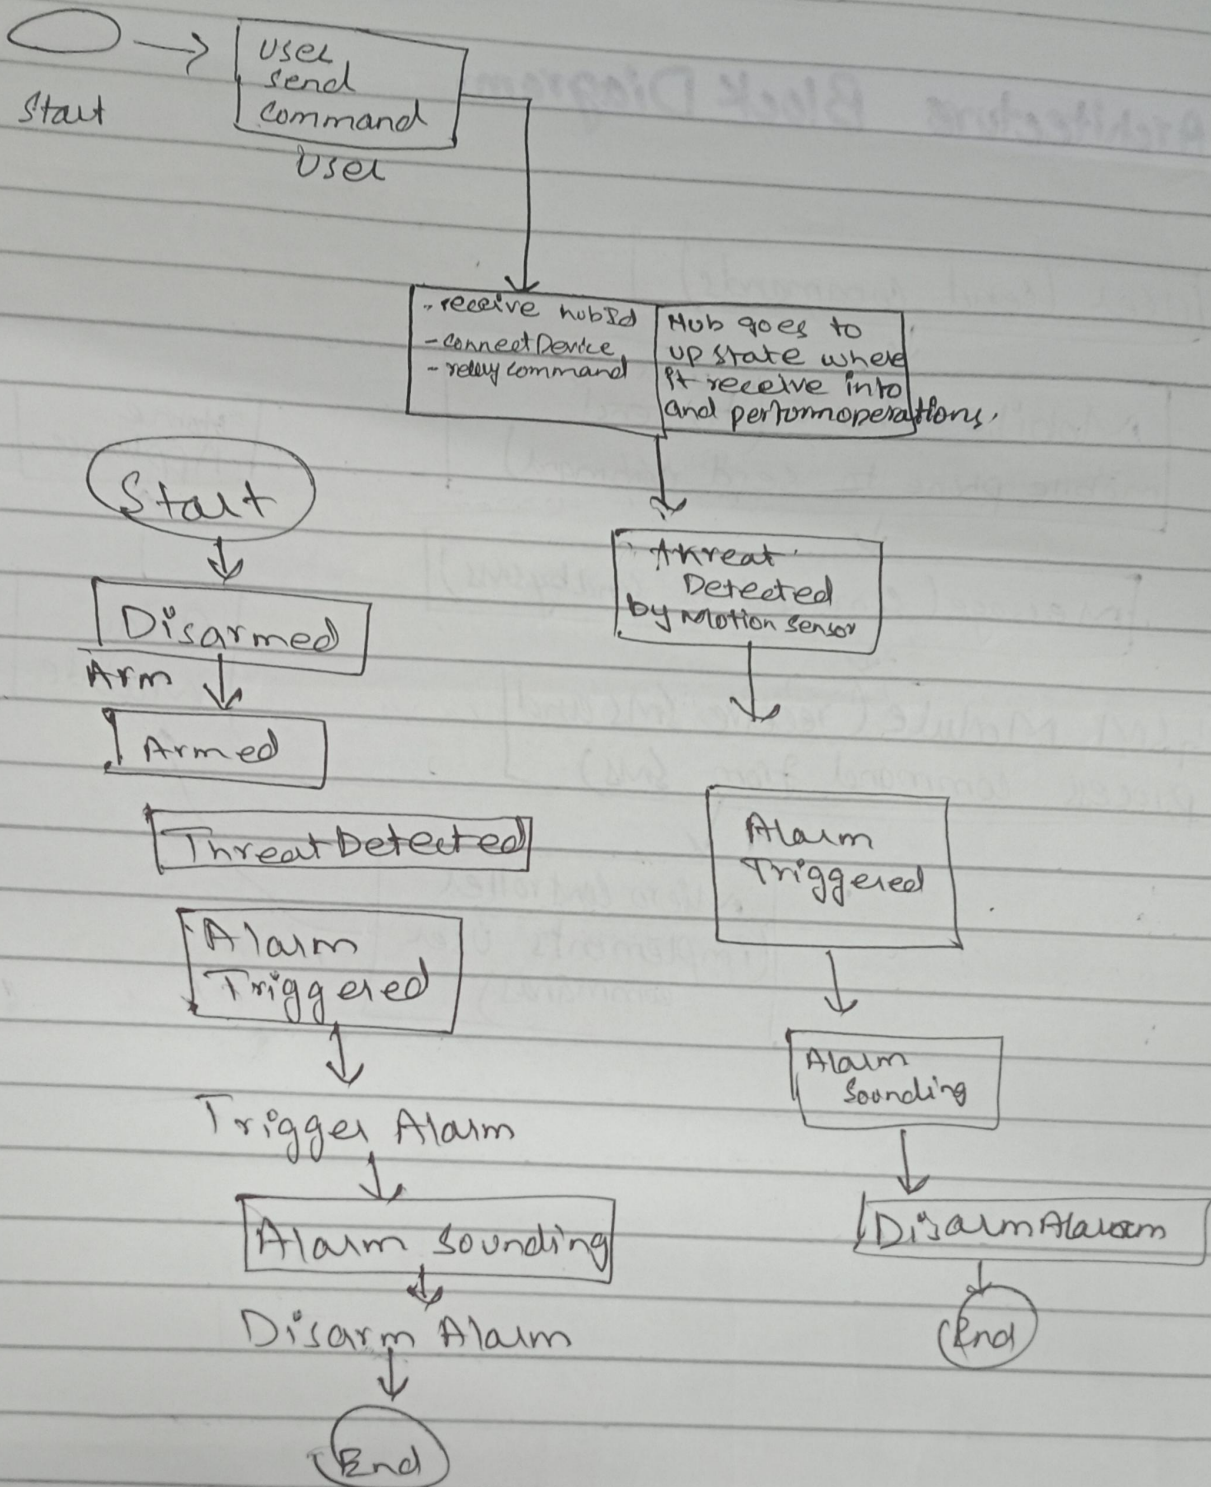 Start
User
send
command
User
- receive hubId
- connectDevice
- relay command
Hub goes to
up state where
it receive info
and perform operations.
Threat
Detected
by Motion sensor
Alarm
Triggered
Alarm
Sounding
Disarm Alarm
End
Start
Disarmed
Arm
Armed
Threat Detected
Alarm
Triggered
Trigger Alarm
Alarm Sounding
Disarm Alarm
End
Architecture Block Diagram